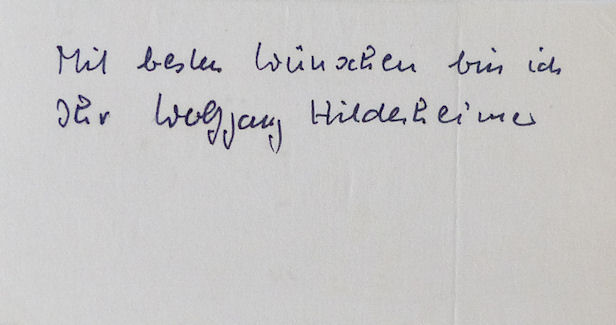 Mit besten Wünschen bin ich
Ihr Wolfgang Hildesheimer